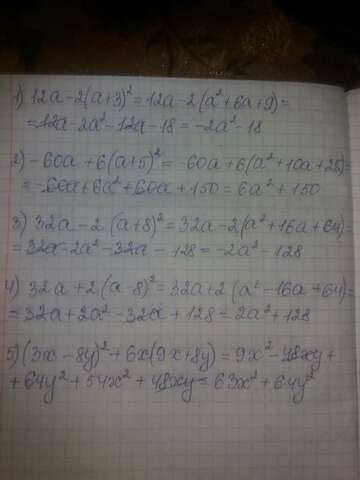 1) 12a-2(a+3)²=12a-2(a²+6a+9)=
=12a-2a²-12a-18=-2a²-18
2) -60a+6(a+5)²=-60a+6(a²+10a+25)=
=-60a+6a²+60a+150=6a²+150
3) 32a-2(a+8)²=32a-2(a²+16a+64)=
=32a-2a²-32a-128=-2a²-128
4) 32a+2(a-8)²=32a+2(a²-16a+64)=
=32a+2a²-32a+128=2a²+128
5) (3x-8y)²+6x(9x+8y)=9x²-48xy+
+64y²+54x²+48xy=63x²+64y²